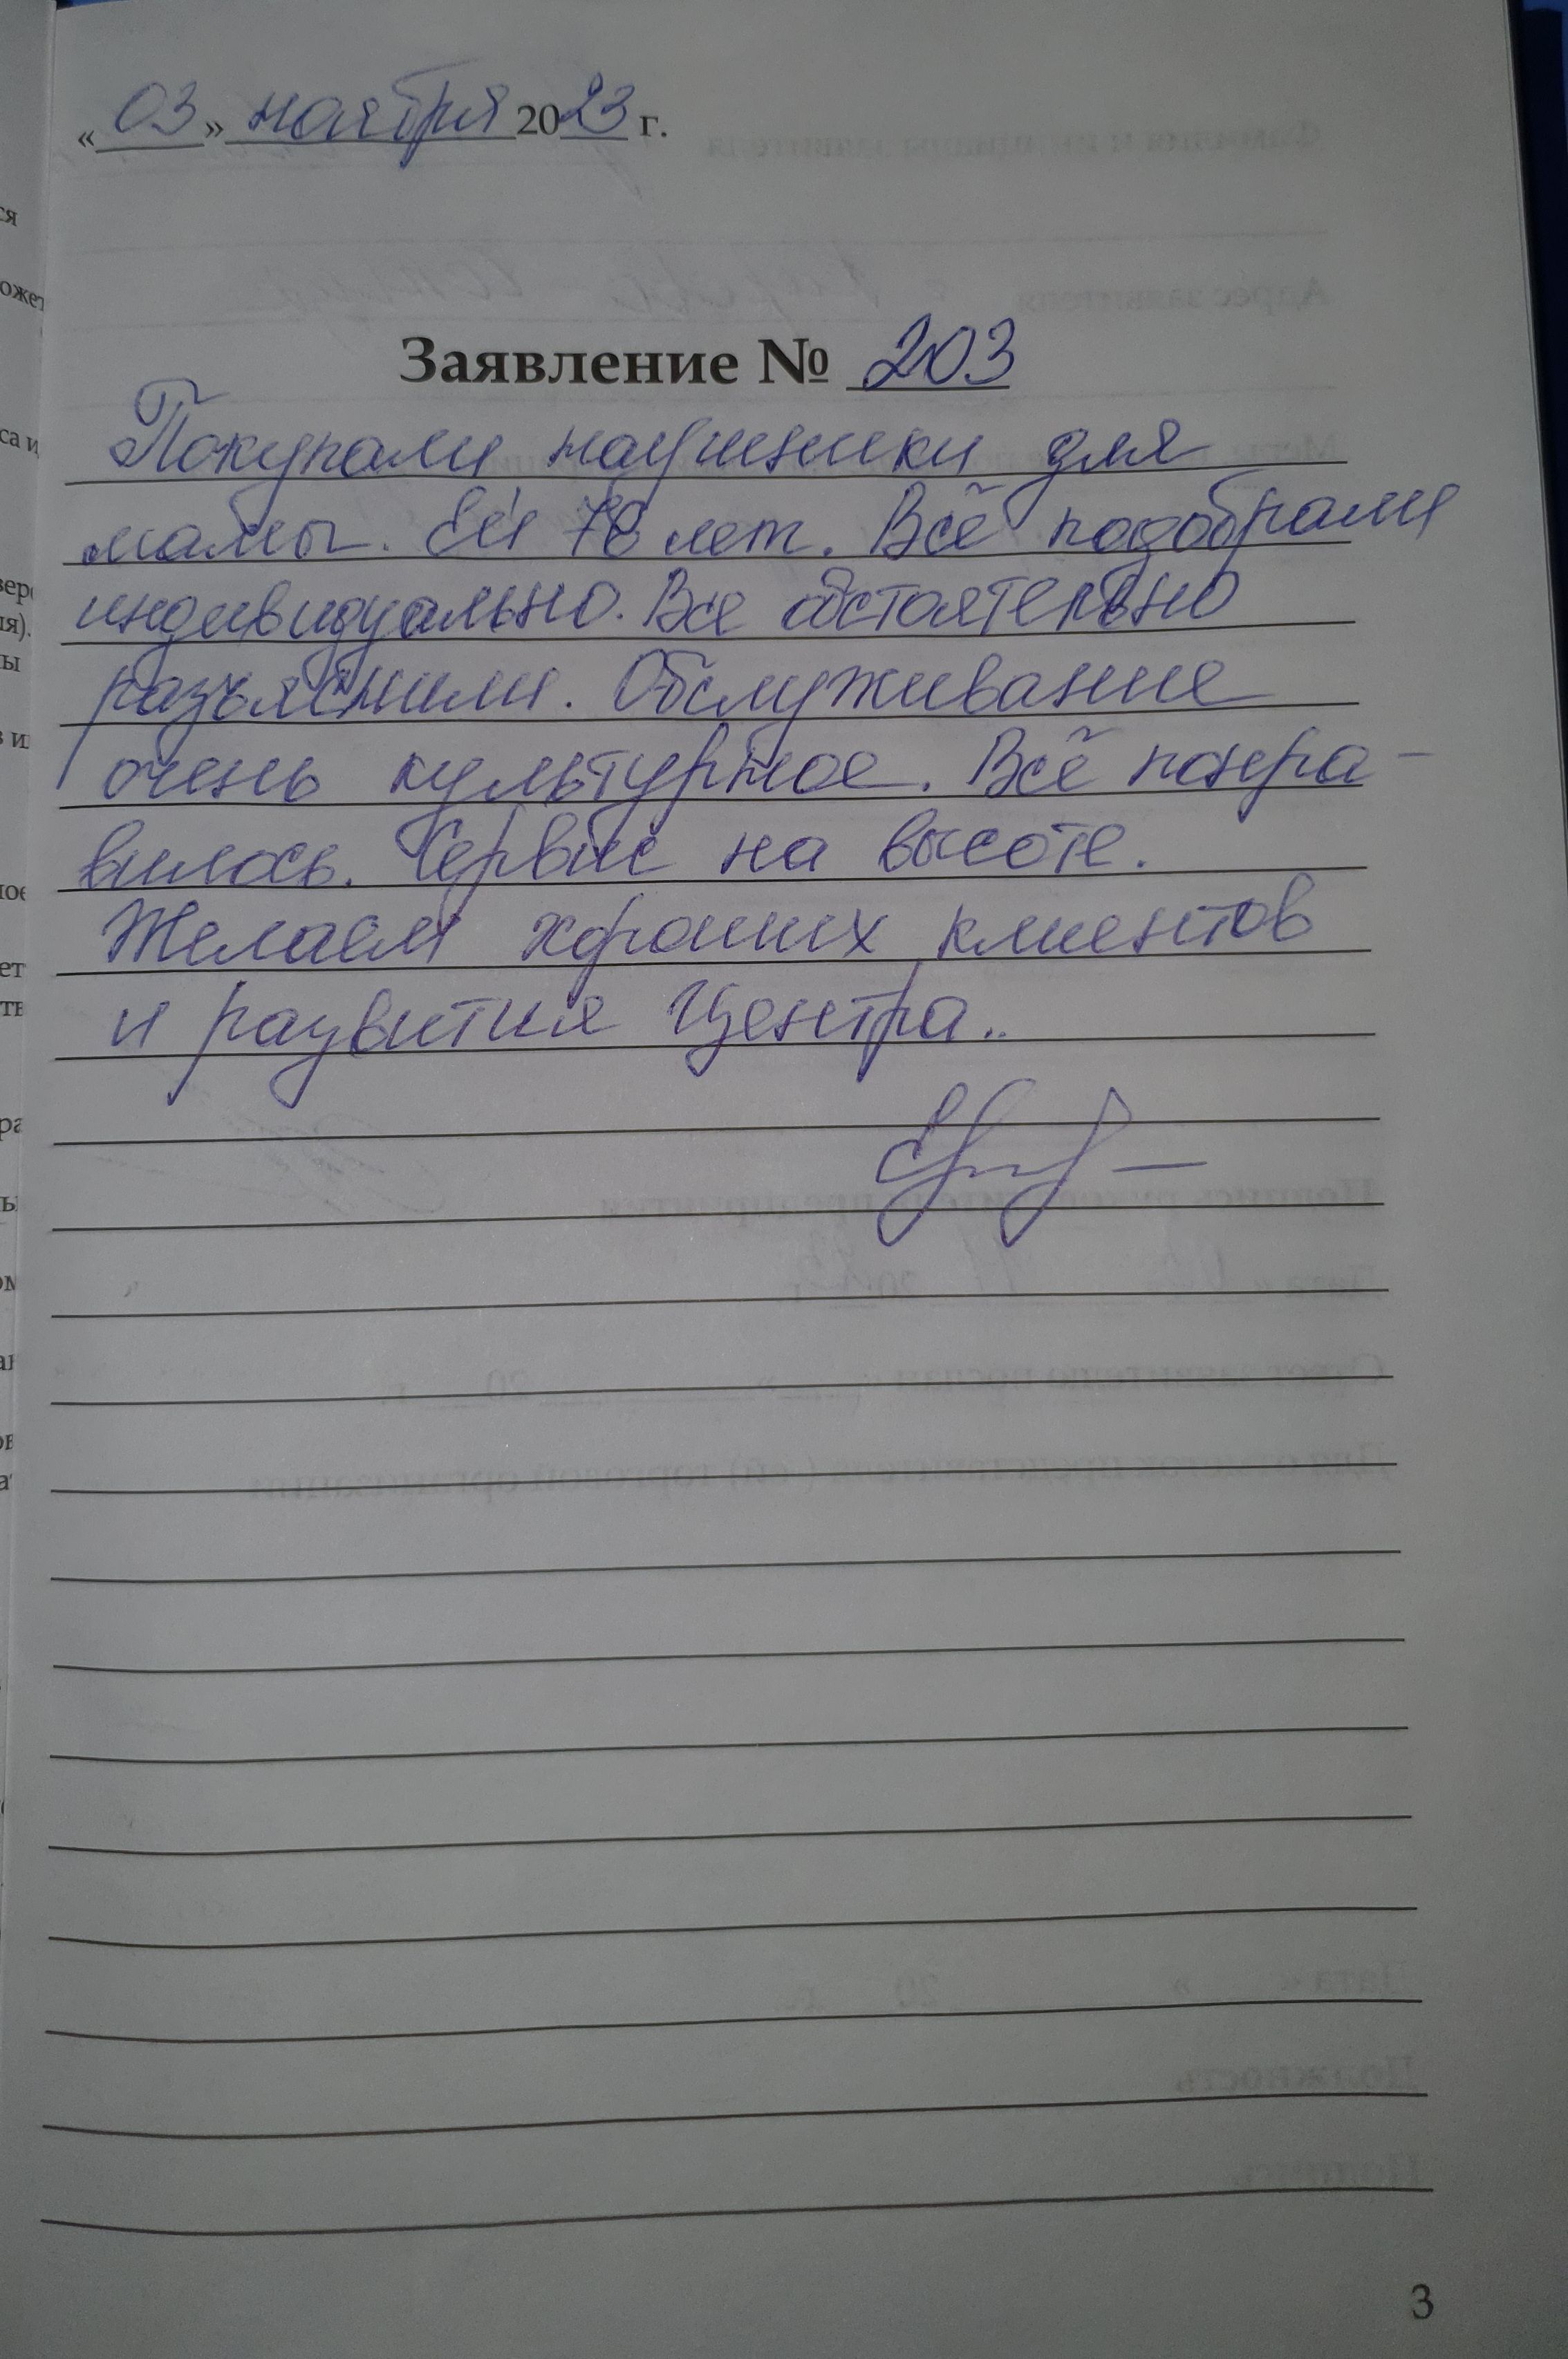 « 03 » ноября 2023 г.
Заявление № 203
Покупали наушники для
мамы. Ей 78 лет. Всё подобрали
индивидуально. Все обстоятельно
разъяснили. Обслуживание
очень культурное. Всё понра-
вилось. Сервис на высоте.
Желаем хороших клиентов
и развития Центра..
3